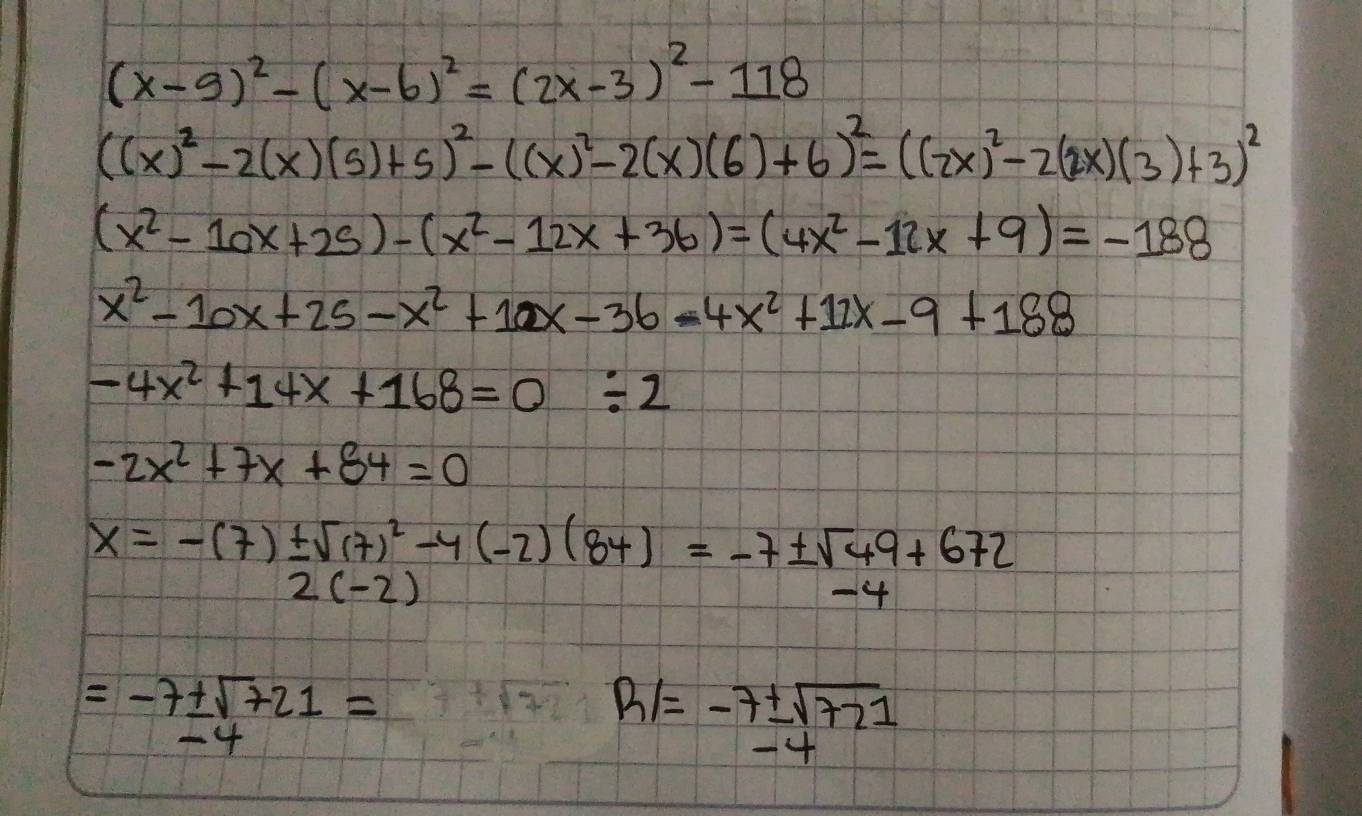 (x-9)² - (x-6)² = (2x-3)² - 118
((x)² - 2(x)(5)+5)² - ((x)² - 2(x)(6)+6)² = ((2x)² - 2(2x)(3)+3)²
(x² - 10x + 25) - (x² - 12x + 36) = (4x² - 12x + 9) = -188
x² - 10x + 25 - x² + 12x - 36 - 4x² + 12x - 9 + 188
-4x² + 14x + 168 = 0 ÷ 2
-2x² + 7x + 84 = 0
x = -(7) ± √(7)² - 4(-2)(84) / 2(-2) = -7 ± √49 + 672 / -4
= -7 ± √721 / -4 = R/= -7 ± √721 / -4